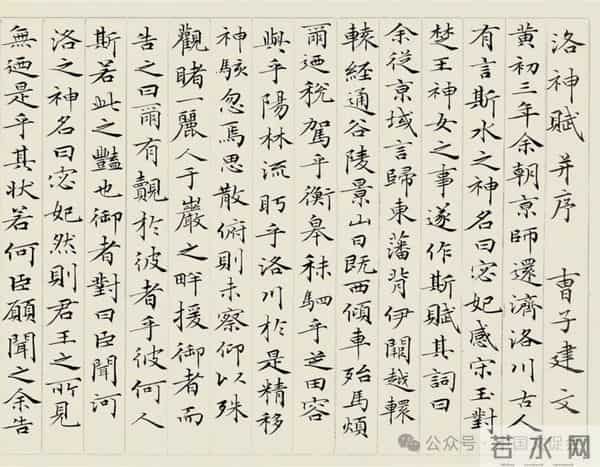 洛神賦 并序 曹子建文
黃初三年余朝京師還濟洛川古人
有言斯水之神名曰宓妃感宋玉對
楚王神女之事遂作斯賦其詞曰
余從京域言歸東藩背伊闕越轘
轅經通谷陵景山日既西傾車殆馬煩
爾迺稅駕乎蘅皋秣駟乎芝田容
與乎陽林流眄乎洛川於是精移
神駭忽焉思散俯則未察仰以殊
觀睹一麗人于巖之畔援御者而
告之曰爾有覿於彼者乎彼何人
斯若此之豔也御者對曰臣聞河
洛之神名曰宓妃然則君王之所見
無迺是乎其狀若何臣願聞之余告
公众号
若水网